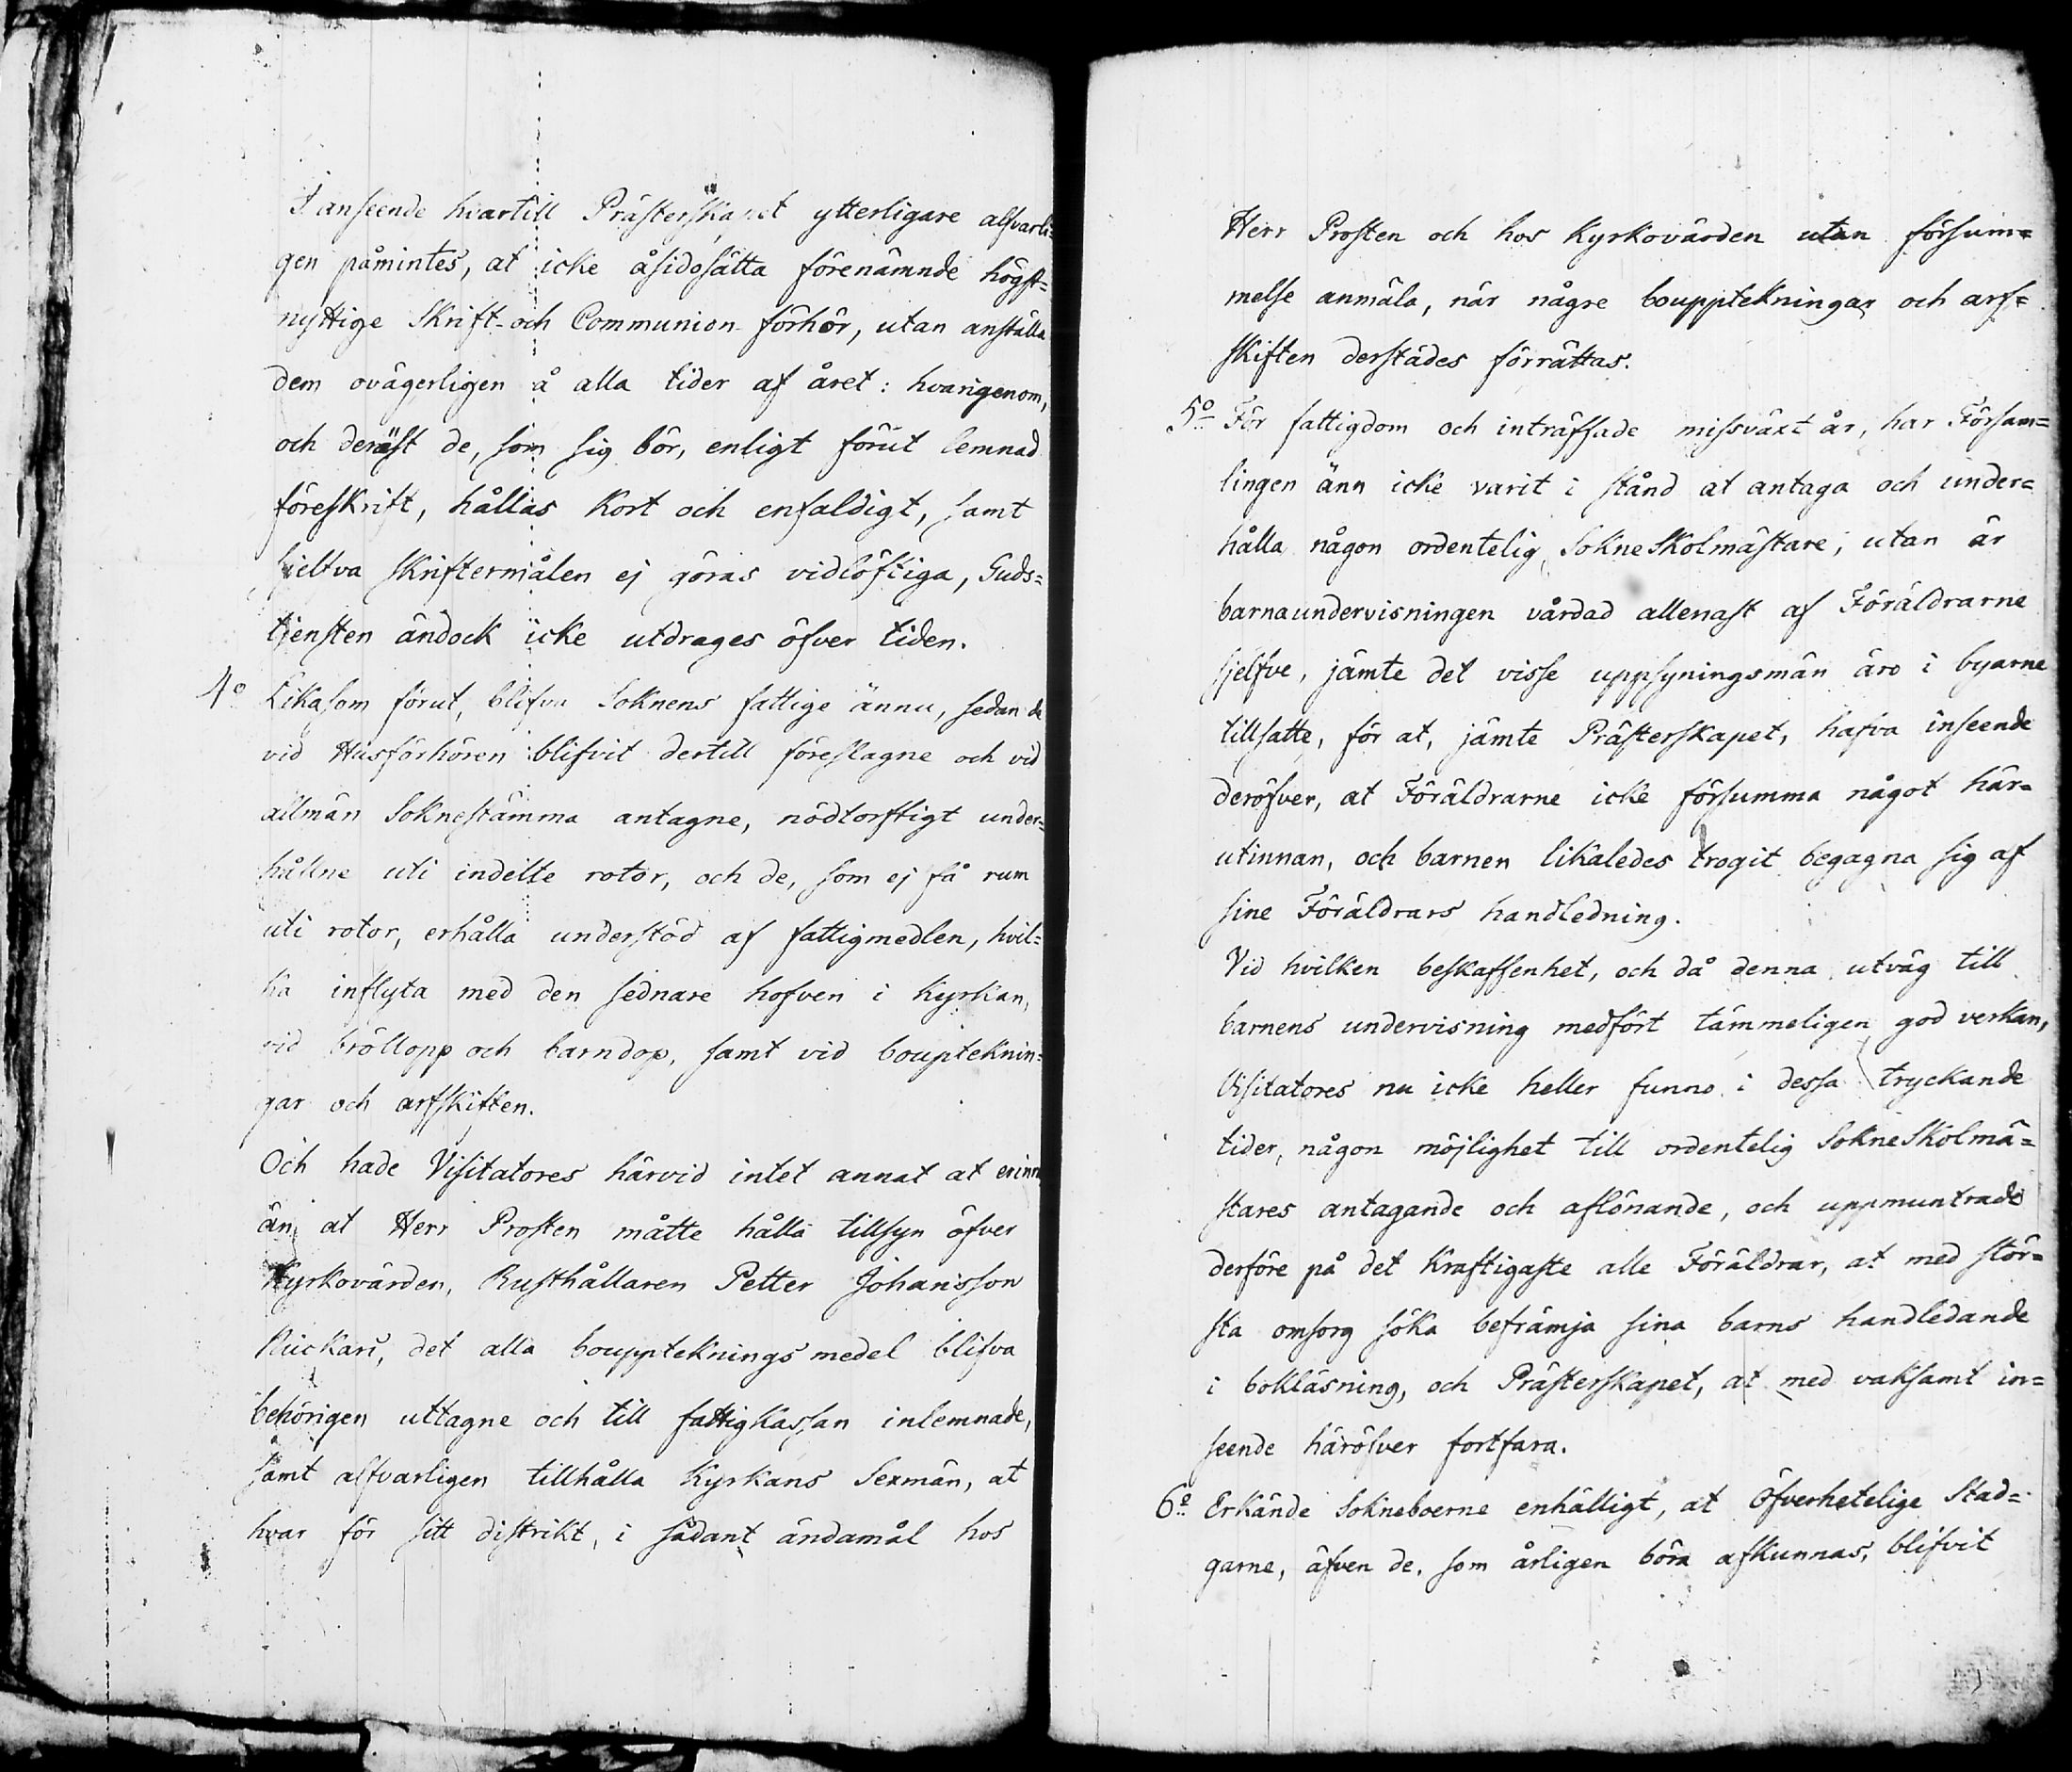 I anseende hvartill Prästerskapet ytterligare alfvarli=
gen påmintes, at icke åsidosätta förenämnde högst=
nyttige Skrift- och Communion-förhör, utan anställa
dem ovägerligen å alla tider af året: hvarigenom,
och deräst de, som sig bör, enligt förut lemnad
föreskrift, hållas kort och enfaldigt, samt
sjelfva skriftermålen ej göras vidlöftiga, Guds=
tjensten ändock icke utdrages öfver tiden.
4o Likasom förut, blifva Soknens fattige ännu, sedan de
vid Husförhören blifvit dertill föreslagne och vid
allmän Soknestämma antagne, nödtorftigt under=
hållne uti indelte rotor, och de, som ej få rum
uti rotor, erhålla understöd af fattigmedlen, hvil=
ka inflyta med den sednare hofven i kyrkan,
vid bröllopp och barndop, samt vid bouptecknin=
gar och arfskiften.
Och hade Visitatores härvid intet annat at erinra
än at Herr Prosten måtte hålla tillsyn öfver
Kyrkovärden, Rusthållaren Petter Johansson
Ruckari, det alla boupptekningsmedel blifva
behörigen uttagne och till fattigkassan inlemnade,
samt alfvarligen tillhålla Kyrkans Sexmän, at
hvar för sitt distrikt, i sådant ändamål hos
Herr Prosten och hos Kyrkovärden utan försum=
melse anmäla, när någre boupptekningar och arf=
skiften derstädes förrättas.
5o För fattigdom och inträffade missväxt år, har Försam=
lingen änn icke varit i stånd at antaga och under=
hålla någon ordentelig Sokneskolmästare; utan är
barnaundervisningen vårdad allenast af Föräldrarne
sjelfve, jämte det visse uppsyningsmän äro i byarne
tillsatte, för at, jämte Prästerskapet, hafva inseende
deröfver, at Föräldrarne icke försumma något här=
utinnan, och barnen likaledes trogit begagna sig af
sine Föräldrars handledning.
Vid hvilken beskaffenhet, och då denna utväg till
barnens undervisning medfört tämmeligen god verkan,
Visitatores nu icke heller funno i dessa tryckande
tider, någon möjlighet till ordentelig Sokneskolmä=
stares antagande och aflönande, och uppmuntrade
derföre på det kraftigaste alle Föräldrar, at med stör=
sta omsorg söka befrämja sina barns handledande
i bokläsning, och Prästerskapet, at med vaksamt in=
seende häröfver fortfara.
6o Erkände Sokneboerne enhälligt, at Öfverhetelige Stad=
garne, äfven de, som årligen böra afkunnas, blifvit